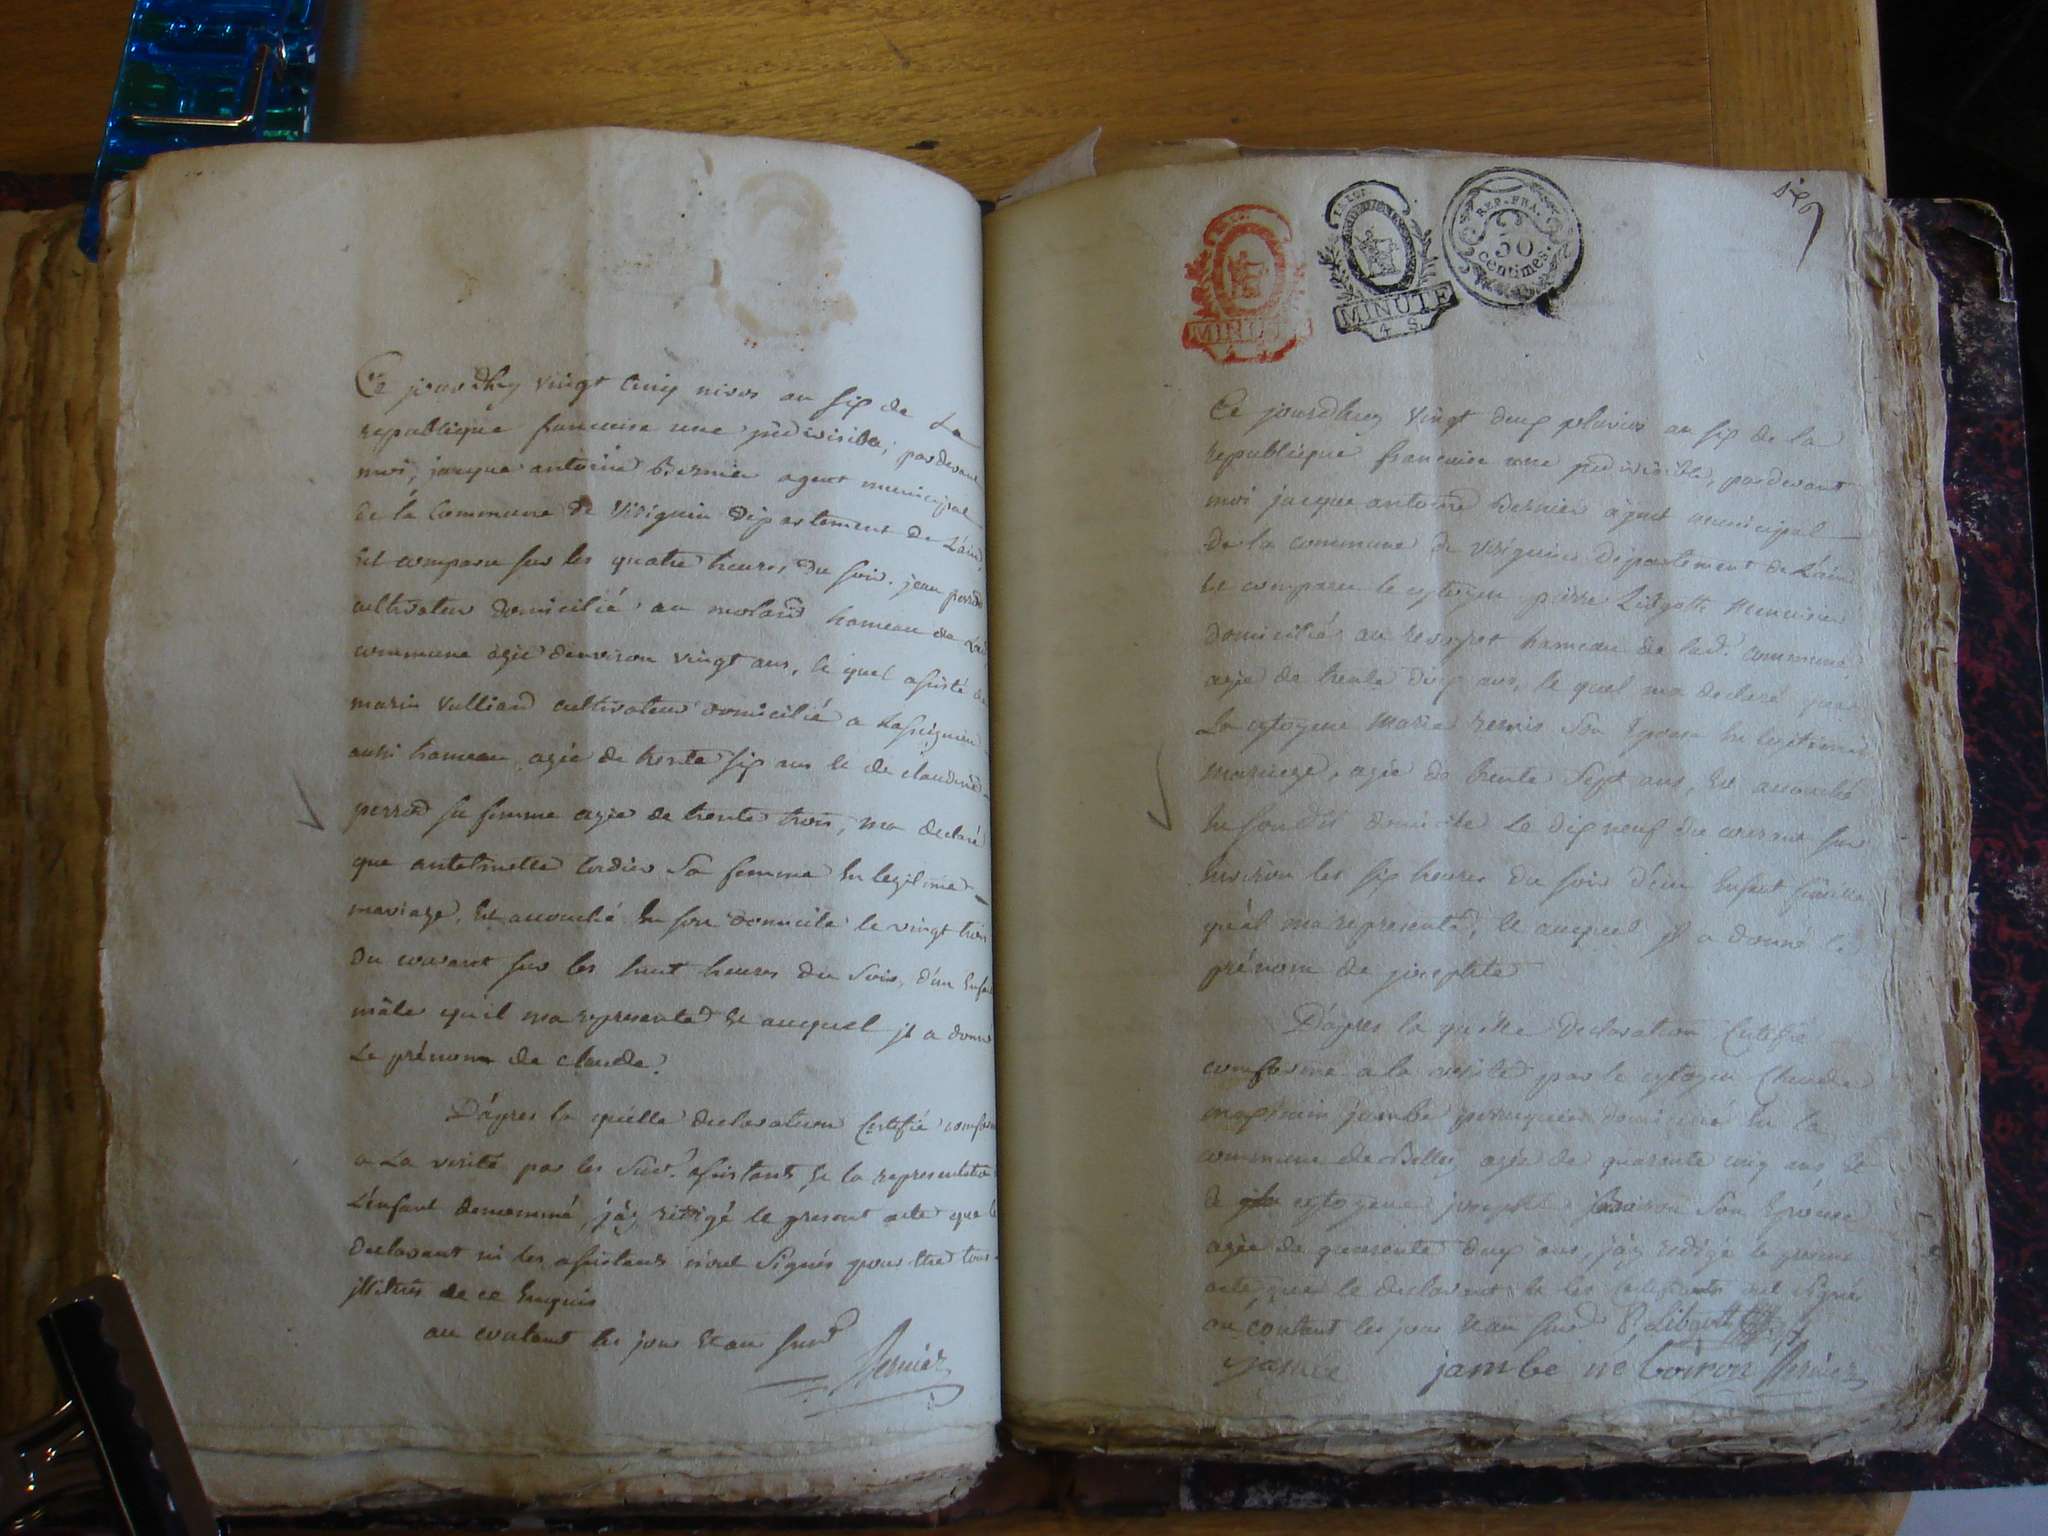 Ce jourdhuy vingt cinq nivos an six de La
republique francoise une jndivisible, pardevant
moi, jacque antoine Bernier agent municipal
de la Commune de Virignin departement de L'ain,
Est comparu sur les quatre heures du soir. jean perrod
cultivateur domicilié au molard hameau de
commune agée d'environ vingt ans, le quel assisté de
marin Vulliod cultivateur domicilié a
aussi hameau, agée de trente six ans & de claudine
perrod sa femme agée de trente trois, ma declaré
que anthelmette Cordier Sa femme En legitime
mariage, Est accouché En son domicile le vingt trois
du courant sur les huit heures du Soir, d'un Enfant
mâle qu'il ma representé & auquel jl a donné
Le prénom de claude.
D'apres la quelle declaration Certifié conforme
a La verité par les Susd. assistants, & la representation
L'enfant denommé, j'ay redigé le present acte que le
declarant ni les assistants n'ont Signés pour être tous
jllitrés de ce Enquis
au contant les jour & an susd
Bernier
REP. FRA.
50
centimes.
MINUTE
4 S
MINUTE
Ce jourdhuy vingt deux pluvios an six de la
republique francoise une jndivisible, pardevant
moi jacque antoine Bernier agent municipal
de la commune de virignin departement de L'ain
Est comparu le cytoyen pierre Menuisier
domicilié au hameau de lad. commune
agée de trente dix ans, le quel ma declaré que
La cytoyene Marie Son Epouse En legitime
Mariage, agée de trente Sept ans, Est accouché
En son dit domicile Le dix neuf du courant sur
Environ les six heures du soir d'un Enfant
qu'il ma representé, & auquel jl a donné le
prénom de josephte
D'apres la quelle declaration Certifié
conforme a la verité par le cytoyen Claude
jambe perruquier domicilié En la
commune de Belley agée de quarante cinq ans, &
de cytoyene josephte Boiron Son Epouse
agée de quarante deux ans, j'ay redigé le present
acte que le declarant & les assistants ont signés
au contant les jour & an susd P. Libgott
jambe jambe né boiron Bernier